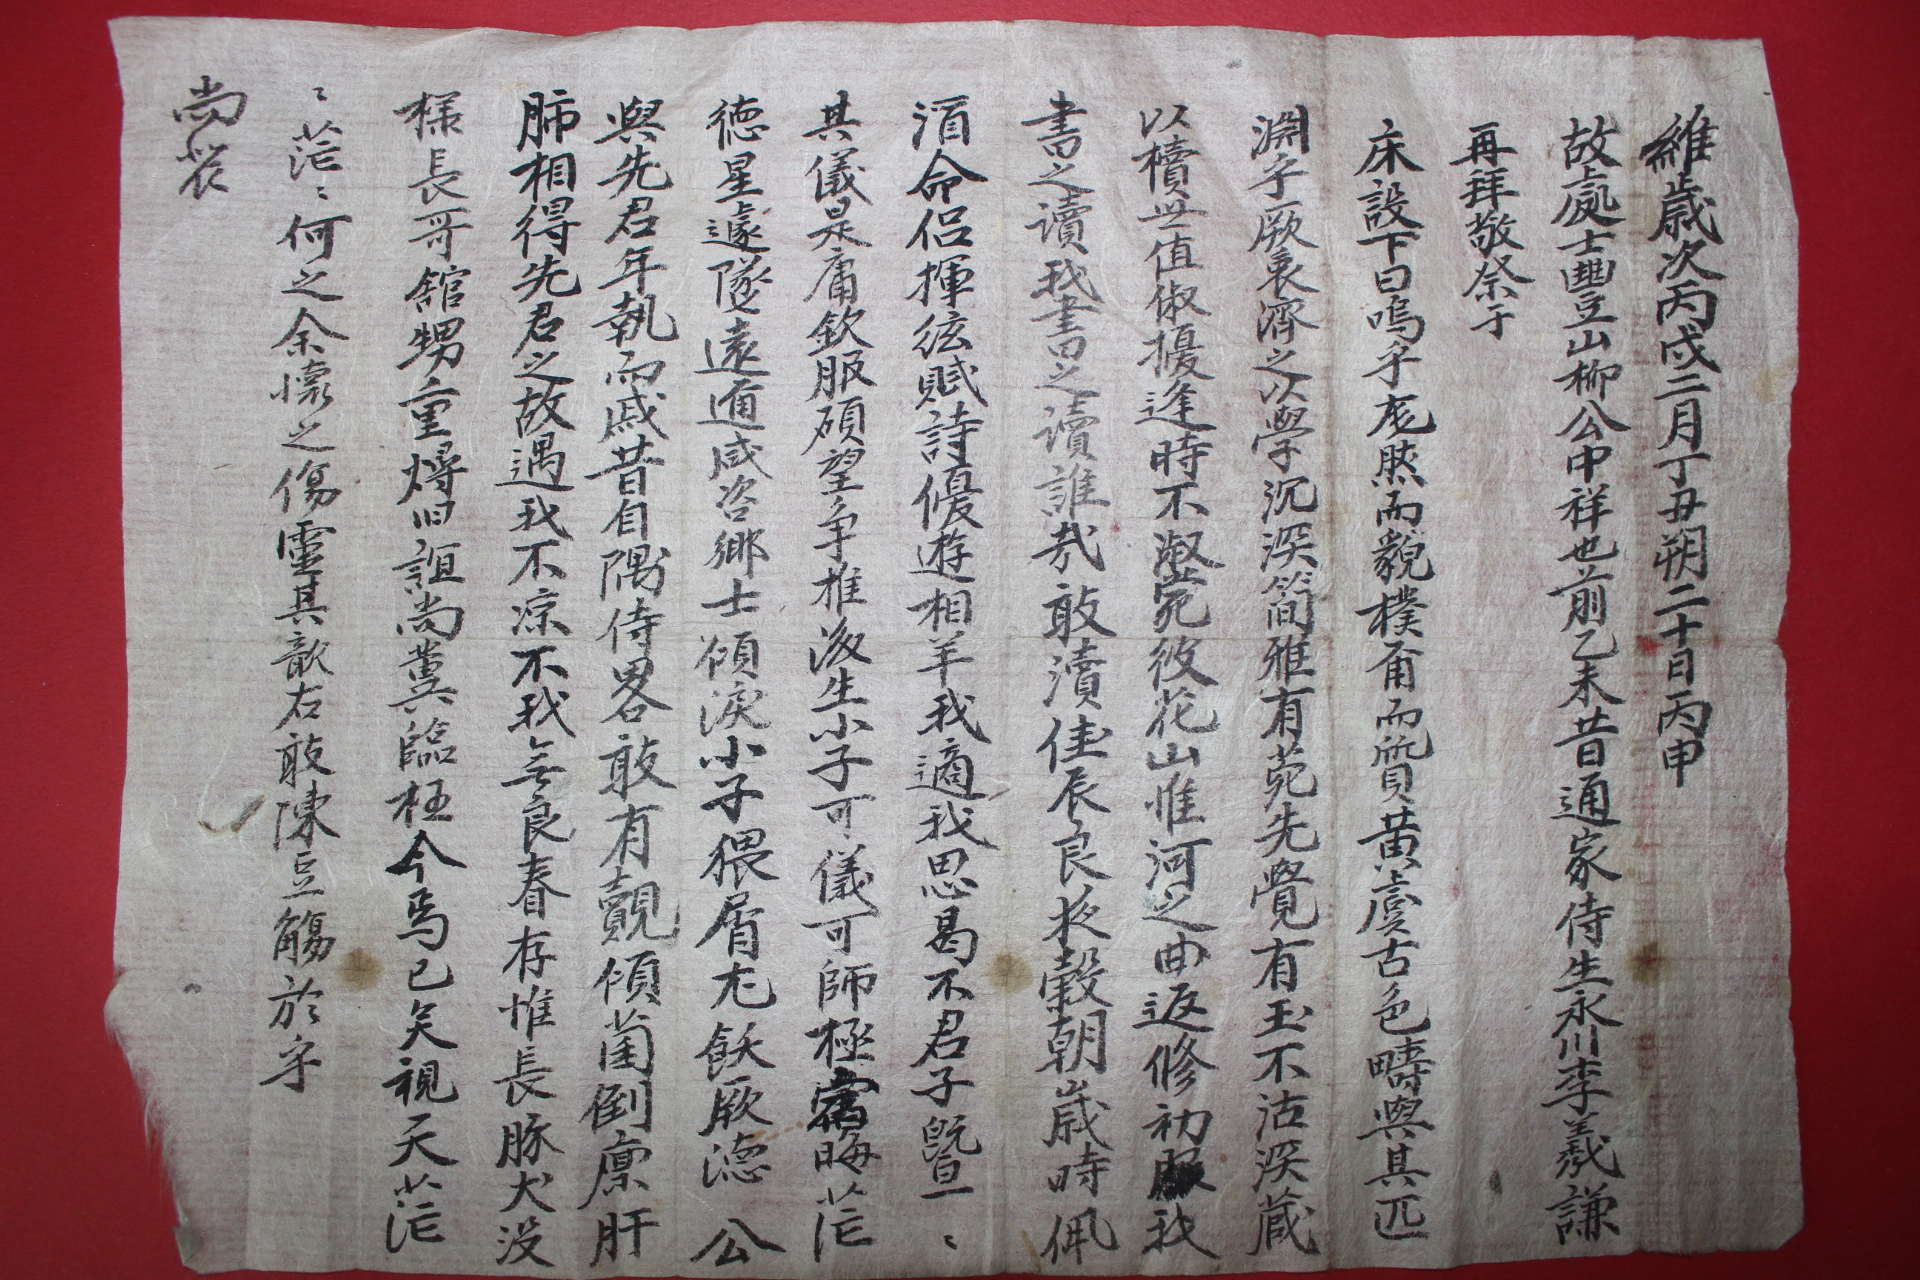 維歲次丙戌二月丁丑朔二十日丙申
故處士豊山柳公中祥也前乙未昔通家侍生永川李羲謙
再拜敬祭于
床設下曰嗚乎厖然而貌樸甬而質黃虞古色疇與其匹
淵乎厥衷濟之以學沉深簡雅有菀先覺有玉不沽深藏
以櫝世值俶擾逢時不淑菀彼花山惟河之曲返修初服我
書之讀我書之讀誰哉敢瀆佳辰良夜穀朝歲時佩
酒命侶揮絃賦詩優遊相羊我適我思曷不君子曁一〻
其儀是庸欽服碩望爭推後生小子可儀可師極窩晦茫
德星遽隧遠邇咸咨鄉士傾淚小子猥屑尤飫厥德 公
與先君年執而戚昔自隅侍畧敢有覿傾菌倒廩肝
肺相得先君之故遇我不凉不我無良眷存惟長豚犬沒
樣長哥舘甥重燖旧誼尚冀臨枉今焉已矣視天茫
〻茫〻何之余懷之傷靈其歆右敢陳豆觴於乎
尚饗